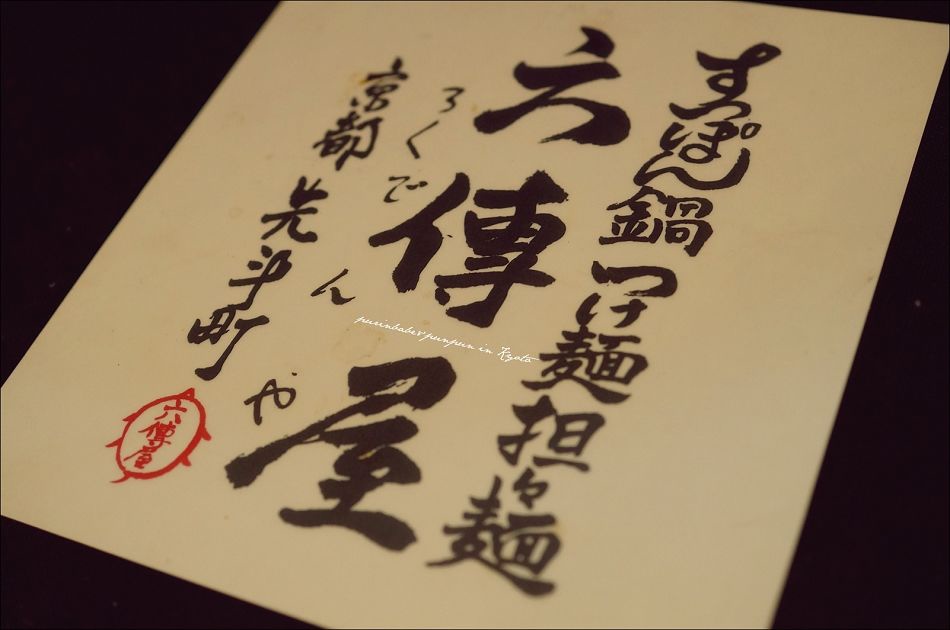 すっぽん鍋 つけ麺 担々麺
六傳屋
ろくでんや
京都 先斗町
六傳屋
purinbabe&punpun in Kyoto